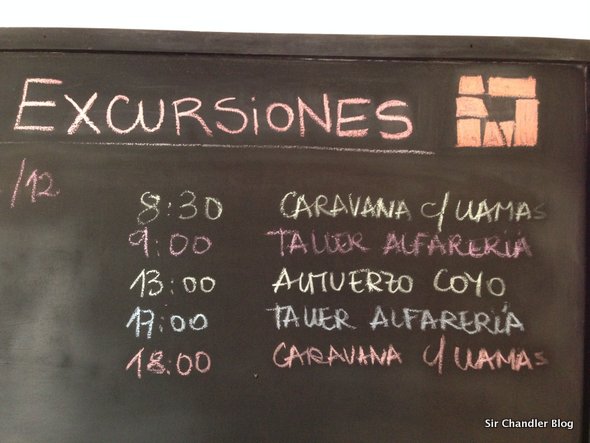 EXCURSIONES
/12
8:30 CARAVANA c/ LLAMAS
9:00 TALLER ALFARERIA
13:00 ALMUERZO COYO
17:00 TALLER ALFARERÍA
18:00 CARAVANA c/ LLAMAS
Sir Chandler Blog